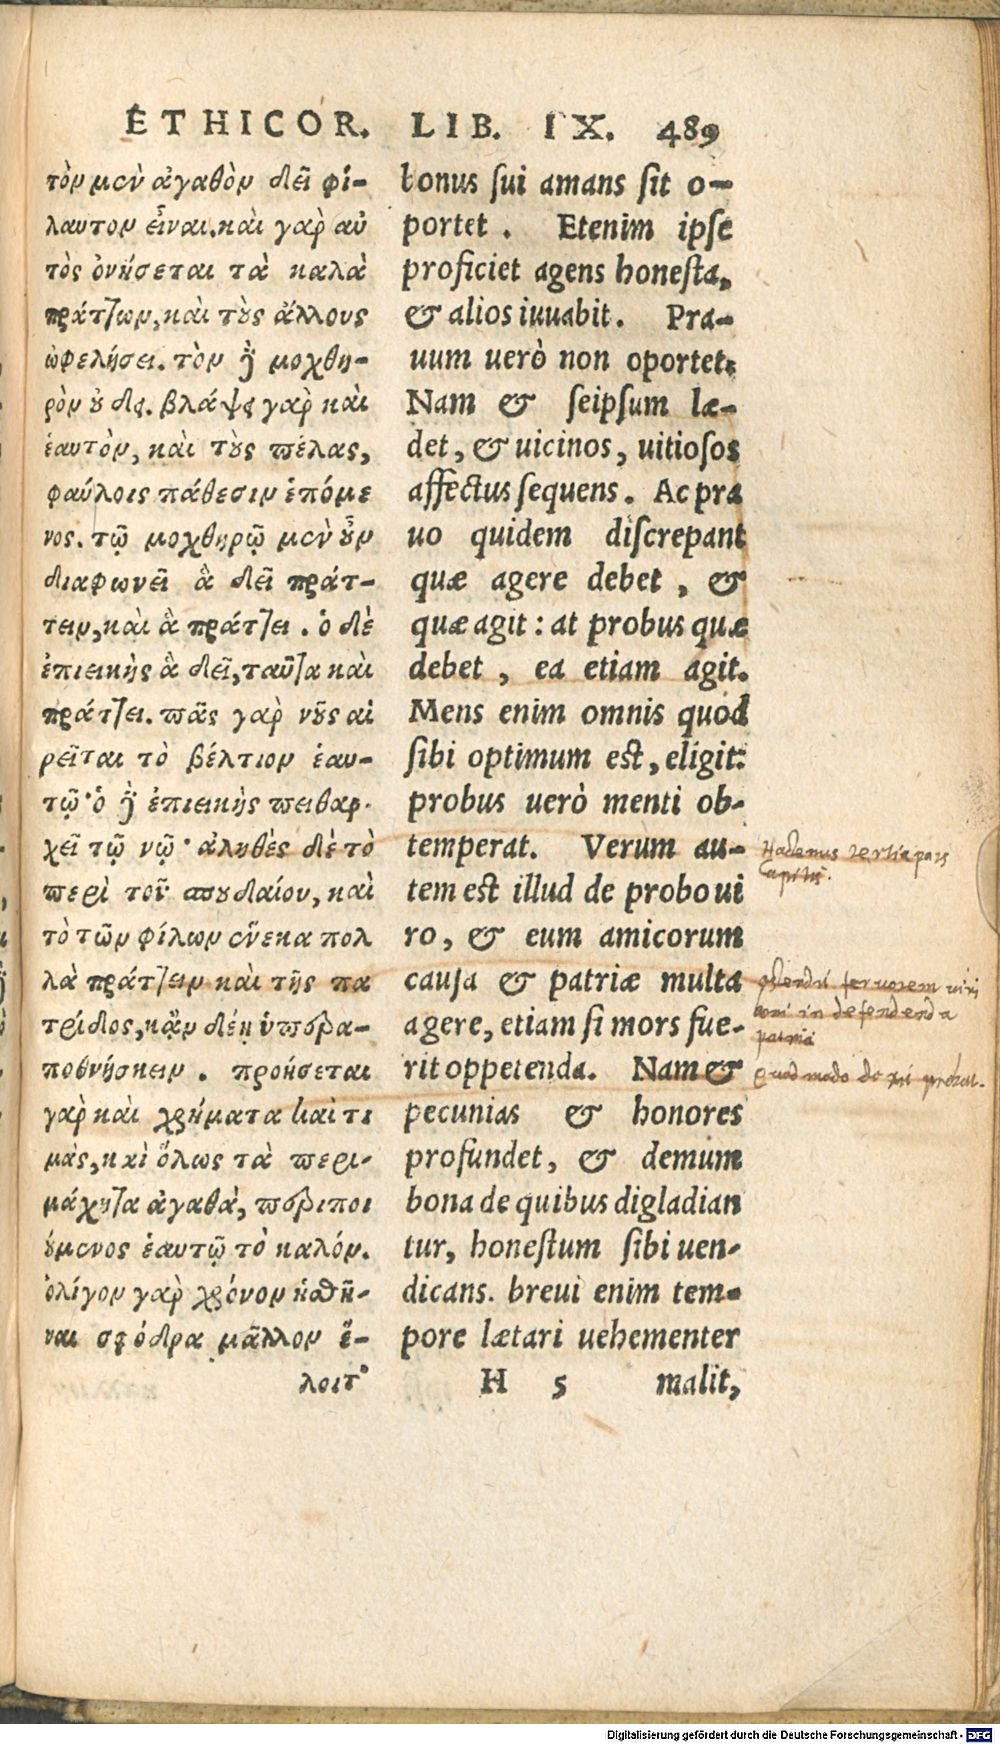 ETHICOR. LIB. IX. 489
τὸν μὲν ἀγαθὸν δεῖ φί-
λαυτον εἶναι. καὶ γὰρ αὐ
τὸς ὀνήσεται τὰ καλὰ
πράττων, καὶ τοὺς ἄλλους
ὠφελήσει. τὸν δὲ μοχθη-
ρὸν οὐ δεῖ. βλάψει γὰρ καὶ
ἑαυτὸν, καὶ τοὺς πέλας,
φαύλοις πάθεσιν ἑπόμε
νος. τῷ μοχθηρῷ μὲν οὖν
διαφωνεῖ ἃ δεῖ πράτ-
τειν, καὶ ἃ πράττει. ὁ δὲ
ἐπιεικὴς ἃ δεῖ, ταῦτα καὶ
πράττει. πᾶς γὰρ νοῦς αἱ
ρεῖται τὸ βέλτιον ἑαυ-
τῷ· ὁ δὲ ἐπιεικὴς πειθαρ-
χεῖ τῷ νῷ· ἀληθὲς δὲ τὸ
περὶ τοῦ σπουδαίου, καὶ
τὸ τῶν φίλων ἕνεκα πολ
λὰ πράττειν καὶ τῆς πα
τρίδος, κἂν δέῃ ὑπερα-
ποθνήσκειν. προήσεται
γὰρ καὶ χρήματα καὶ τι
μὰς, καὶ ὅλως τὰ περι-
μάχητα ἀγαθὰ, περιποι
ούμενος ἑαυτῷ τὸ καλόν.
ὀλίγον γὰρ χρόνον ἡσθῆ-
ναι σφόδρα μᾶλλον ἕ-
λοιτ᾽
bonus sui amans sit o-
portet. Etenim ipse
proficiet agens honesta,
& alios iuuabit. Pra-
uum uerò non oportet.
Nam & seipsum læ-
det, & uicinos, uitiosos
affectus sequens. Ac pra
uo quidem discrepant
quæ agere debet, &
quæ agit: at probus quæ
debet, ea etiam agit.
Mens enim omnis quod
sibi optimum est, eligit:
probus uerò menti ob-
temperat. Verum au-
tem est illud de probo ui
ro, & eum amicorum
causa & patriæ multa
agere, etiam si mors fue-
rit oppetenda. Nam &
pecunias & honores
profundet, & demum
bona de quibus digladian
tur, honestum sibi uen-
dicans. breui enim tem-
pore lætari uehementer
H 5 malit,
Hactenus tertia pars
capitis.
ostendit feruorem uiri
boni in defendenda
patria
quod modo de